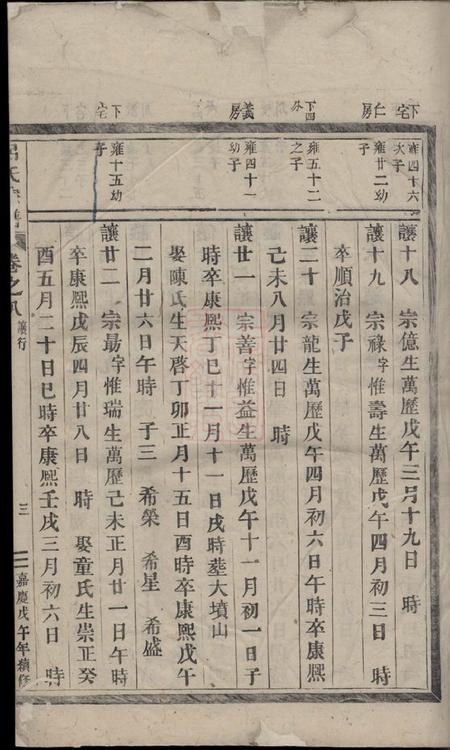 下宅
雍四十六
次子
讓十八 宗億生萬歷戊午三月十九日 時
仁房
雍廿二幼
子
讓十九 宗祿字惟壽生萬歷戊午四月初三日 時
卒順治戊子
下四外
雍五十二
之子
讓二十 宗龍生萬歷戊午四月初六日午時卒康熙
己未八月廿四日 時
義房
雍四十一
幼子
讓廿一 宗善字惟益生萬歷戊午十一月初一日子
時卒康熙丁巳十一月十一日戌時塟大墳山
娶陳氏生天啓丁卯正月十五日酉時卒康熙戊午
二月廿六日午時 子三 希榮 希星 希盛
下宅
雍十五幼
子
讓廿二 宗最字惟瑞生萬歷己未正月廿一日午時
卒康熙戊辰四月廿八日 時 娶童氏生崇正癸
酉五月二十日巳時卒康熙壬戌三月初六日 時
卷之八 讓行 三 嘉慶戊午年續修